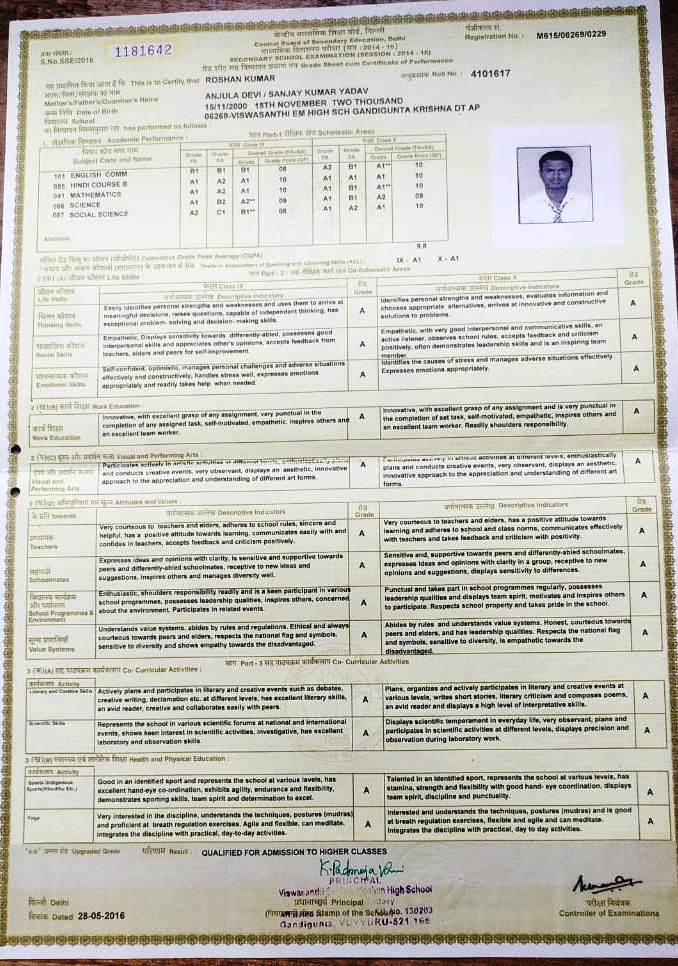 केन्द्रीय माध्यमिक शिक्षा बोर्ड, दिल्ली
Central Board of Secondary Education, Delhi
माध्यमिक विद्यालय परीक्षा (सत्र : 2014 - 16)
SECONDARY SCHOOL EXAMINATION (SESSION : 2014 - 16)
Grade Sheet cum Certificate of Performance
क्रम संख्या/
S.No.SSE/2016 1181642
पंजीकरण सं.
Registration No.: M615/00269/0229
This is to Certify that ROSHAN KUMAR
अनुक्रमांक Roll No.: 4101617
Mother's/Father's/Guardian's Name ANJULA DEVI / SANJAY KUMAR YADAV
जन्म तिथि Date of Birth 15/11/2000 15TH NOVEMBER TWO THOUSAND
विद्यालय School 06269-VISWASANTHI EM HIGH SCH GANDIGUNTA KRISHNA DT AP
has performed as follows
Part-1 Scholastic Areas
Academic Performance :
Subject Code and Name
Grade FA Grade SA Overall Grade (FA+SA) Grade Grade Point (GP) Grade FA Grade SA Overall Grade (FA+SA) Grade Grade Point (GP)
101 ENGLISH COMM. B1 B1 B1 08 A2 B1 A1** 10
085 HINDI COURSE B A1 A2 A1 10 A1 A1 A1 10
041 MATHEMATICS A1 A2 A1 10 A1 B1 A1** 10
086 SCIENCE A1 B2 A2** 09 A1 B1 A2 09
087 SOCIAL SCIENCE A2 C1 B1** 08 A1 A2 A1 10
Additional
Cumulative Grade Point Average (CGPA) 9.8
Grade in Assessment of Speaking and Listening Skills (ASL) : IX - A1 X - A1
Part - 2 : Co-Scholastic Areas
Life Skills :
जीवन कौशल
Life Skills
कक्षा Class IX
वर्णनात्मक उल्लेख Descriptive Indicators
ग्रेड
Grade
कक्षा Class X
वर्णनात्मक उल्लेख Descriptive Indicators
ग्रेड
Grade
चिंतन कौशल
Thinking Skills
Easily identifies personal strengths and weaknesses and uses them to arrive at
meaningful decisions, raises questions, capable of independent thinking, has
exceptional problem- solving and decision- making skills.
A
Identifies personal strengths and weaknesses, evaluates information and
chooses appropriate alternatives, arrives at innovative and constructive
solutions to problems.
A
सामाजिक कौशल
Social Skills
Empathetic, Displays sensitivity towards differently-abled, possesses good
interpersonal skills and appreciates other's opinions, accepts feedback from
teachers, elders and peers for self-improvement.
A
Empathetic, with very good interpersonal and communicative skills, an
active listener, observes school rules, accepts feedback and criticism
positively, often demonstrates leadership skills and is an inspiring team
member.
A
भावनात्मक कौशल
Emotional Skills
Self-confident, optimistic, manages personal challenges and adverse situations
effectively and constructively, handles stress well, expresses emotions
appropriately and readily takes help when needed.
A
Identifies the causes of stress and manages adverse situations effectively.
Expresses emotions appropriately.
A
2 (ख)(B) कार्य शिक्षा Work Education :
कार्य शिक्षा
Work Education
Innovative, with excellent grasp of any assignment, very punctual in the
completion of any assigned task, self-motivated, empathetic, inspires others and
an excellent team worker.
A
Innovative, with excellent grasp of any assignment and is very punctual in
the completion of set task, self-motivated, empathetic, inspires others and
an excellent team worker. Readily shoulders responsibility.
A
Visual and Performing Arts :
Visual and
Performing Arts
Participates actively in artistic activities at different levels, enthusiastically plans
and conducts creative events, very observant, displays an aesthetic, innovative
approach to the appreciation and understanding of different art forms.
A
Participates actively in artistic activities at different levels, enthusiastically
plans and conducts creative events, very observant, displays an aesthetic,
innovative approach to the appreciation and understanding of different art
forms.
A
Attitudes and Values :
के प्रति towards
वर्णनात्मक उल्लेख Descriptive Indicators
ग्रेड
Grade
वर्णनात्मक उल्लेख Descriptive Indicators
ग्रेड
Grade
अध्यापक
Teachers
Very courteous to teachers and elders, adheres to school rules, sincere and
helpful, has a positive attitude towards learning, communicates easily with and
confides in teachers, accepts feedback and criticism positively.
A
Very courteous to teachers and elders, has a positive attitude towards
learning and adheres to school and class norms, communicates effectively
with teachers and takes feedback and criticism with positivity.
A
सहपाठी
Schoolmates
Expresses ideas and opinions with clarity, is sensitive and supportive towards
peers and differently-abled schoolmates, receptive to new ideas and
suggestions, inspires others and manages diversity well.
A
Sensitive and, supportive towards peers and differently-abled schoolmates,
expresses ideas and opinions with clarity in a group, receptive to new
opinions and suggestions, displays sensitivity to differences.
A
विद्यालय कार्यक्रम
और पर्यावरण
School Programmes &
Environment
Enthusiastic, shoulders responsibility readily and is a keen participant in various
school programmes, possesses leadership qualities, inspires others, concerned
about the environment. Participates in related events.
A
Punctual and takes part in school programmes regularly, possesses
leadership qualities and displays team spirit, motivates and inspires others
to participate. Respects school property and takes pride in the school.
A
मूल्य प्रणालियाँ
Value Systems
Understands value systems, abides by rules and regulations. Ethical and always
courteous towards peers and elders, respects the national flag and symbols,
sensitive to diversity and shows empathy towards the disadvantaged.
A
Abides by rules and understands value systems. Honest, courteous towards
peers and elders, and has leadership qualities. Respects the national flag
and symbols, sensitive to diversity, is empathetic towards the
disadvantaged.
A
भाग Part - 3 सह पाठ्यक्रम कार्यकलाप Co- Curricular Activities
3 (क)(A) सह पाठ्यक्रम कार्यकलाप Co- Curricular Activities :
कार्यकलाप Activity
Literary and Creative Skills
Actively plans and participates in literary and creative events such as debates,
creative writing, declamation etc. at different levels, has excellent literary skills,
an avid reader, creative and collaborates easily with peers.
A
Plans, organizes and actively participates in literary and creative events at
various levels, writes short stories, literary criticism and composes poems,
an avid reader and displays a high level of interpretative skills.
A
Scientific Skills
Represents the school in various scientific forums at national and international
events, shows keen interest in scientific activities, investigative, has excellent
laboratory and observation skills.
A
Displays scientific temperament in everyday life, very observant, plans and
participates in scientific activities at different levels, displays precision and
observation during laboratory work.
A
3 (ख)(B) स्वास्थ्य एवं शारीरिक शिक्षा Health and Physical Education :
कार्यकलाप Activity
Sports /Indigenous
Sports(Kho-Kho Etc.)
Good in an identified sport and represents the school at various levels, has
excellent hand-eye co-ordination, exhibits agility, endurance and flexibility,
demonstrates sporting skills, team spirit and determination to excel.
A
Talented in an identified sport, represents the school at various levels, has
stamina, strength and flexibility with good hand- eye coordination, displays
team spirit, discipline and punctuality.
A
Yoga
Very interested in the discipline, understands the techniques, postures (mudras)
and proficient at breath regulation exercises. Agile and flexible, can meditate.
Integrates the discipline with practical, day-to-day activities.
A
Interested and understands the techniques, postures (mudras) and is good
at breath regulation exercises, flexible and agile and can meditate.
Integrates the discipline with practical, day to day activities.
A
Upgraded Grade परिणाम Result : QUALIFIED FOR ADMISSION TO HIGHER CLASSES
PRINCIPAL
High School
प्रधानाचार्य Principal
Stamp of the School No. 130203
Gandigunta, VUYYURU-521 165
दिल्ली Delhi
दिनांक Dated 28-05-2016
परीक्षा नियंत्रक
Controller of Examinations